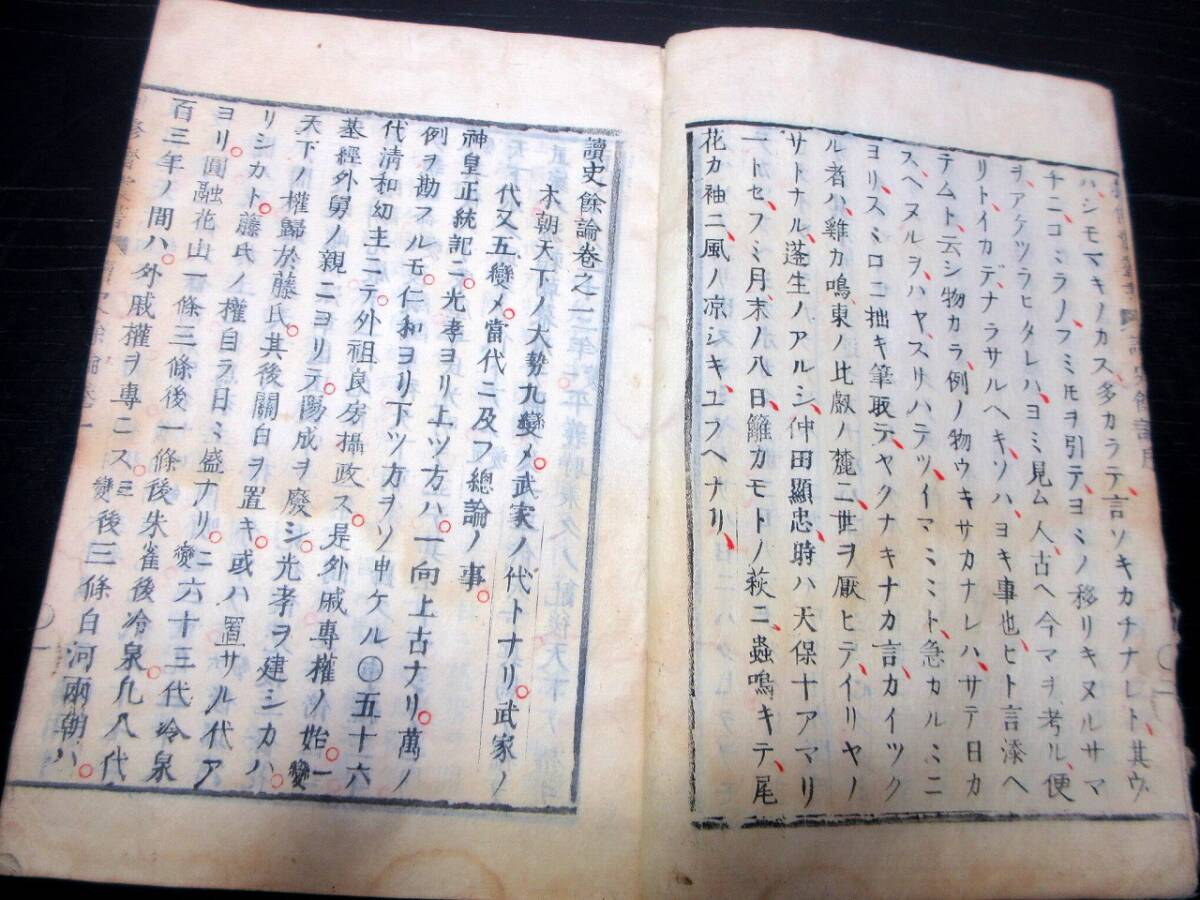 ハ、シモマキノカス多カラテ、言ソキカチナレト、其ウ
チニ、コミラノフミモヲ引テ、ヨミノ移リキヌルサマ
ヲ、アケツラヒタレハ、ヨミ見ム人、古ヘ今マヲ考ル、便
リト、イカデナラサルヘキ、ソハ、ヨキ事也、ヒト言添ヘ
テムト、云シ物カラ、例ノ物ウキサカナレハ、サテ日カ
スヘヌルヲ、ハヤ、スリハテツ、イマミミト、急カルミニ
ヨリ、スミロニ拙キ筆取テ、ヤクナキナカ言、カイツク
ル者ハ、雞カ鳴、東ノ比叡ノ麓ニ、世ヲ厭ヒテ、イリヤノ
サトナル、蓬生ノアルシ、仲田顯忠、時ハ天保十アマリ
一トセ、フミ月、末ノ八日、籬カモトノ萩ニ、蟲鳴キテ、尾
花カ袖ニ、風ノ凉シキ、ユフヘナリ、
讀史餘論卷之一
本朝天下ノ大勢九變メ。武家ノ代トナリ。武家ノ
代又五變メ。當代ニ及フ總論ノ事。
神皇正統記ニ。光孝ヨリ上ツ方ハ。一向上古ナリ。萬ノ
例ヲ勘フルモ。仁和ヨリ下ツ方ヲソ申ケル◯五十六
代清和幼主ニテ。外祖良房攝政ス。是外戚專權ノ始。一變
基經外舅ノ親ニヨリテ。陽成ヲ廢シ。光孝ヲ建シカハ。
天下ノ權歸於藤氏。其後關白ヲ置キ。或ハ置サル代ア
リシカト。藤氏ノ權自ラ日ミ盛ナリ。二變六十三代冷泉
ヨリ。圓融花山一條三條後一條後朱雀後冷泉凡八代
百三年ノ間ハ。外戚權ヲ專ニス。三變後三條白河兩朝ハ。